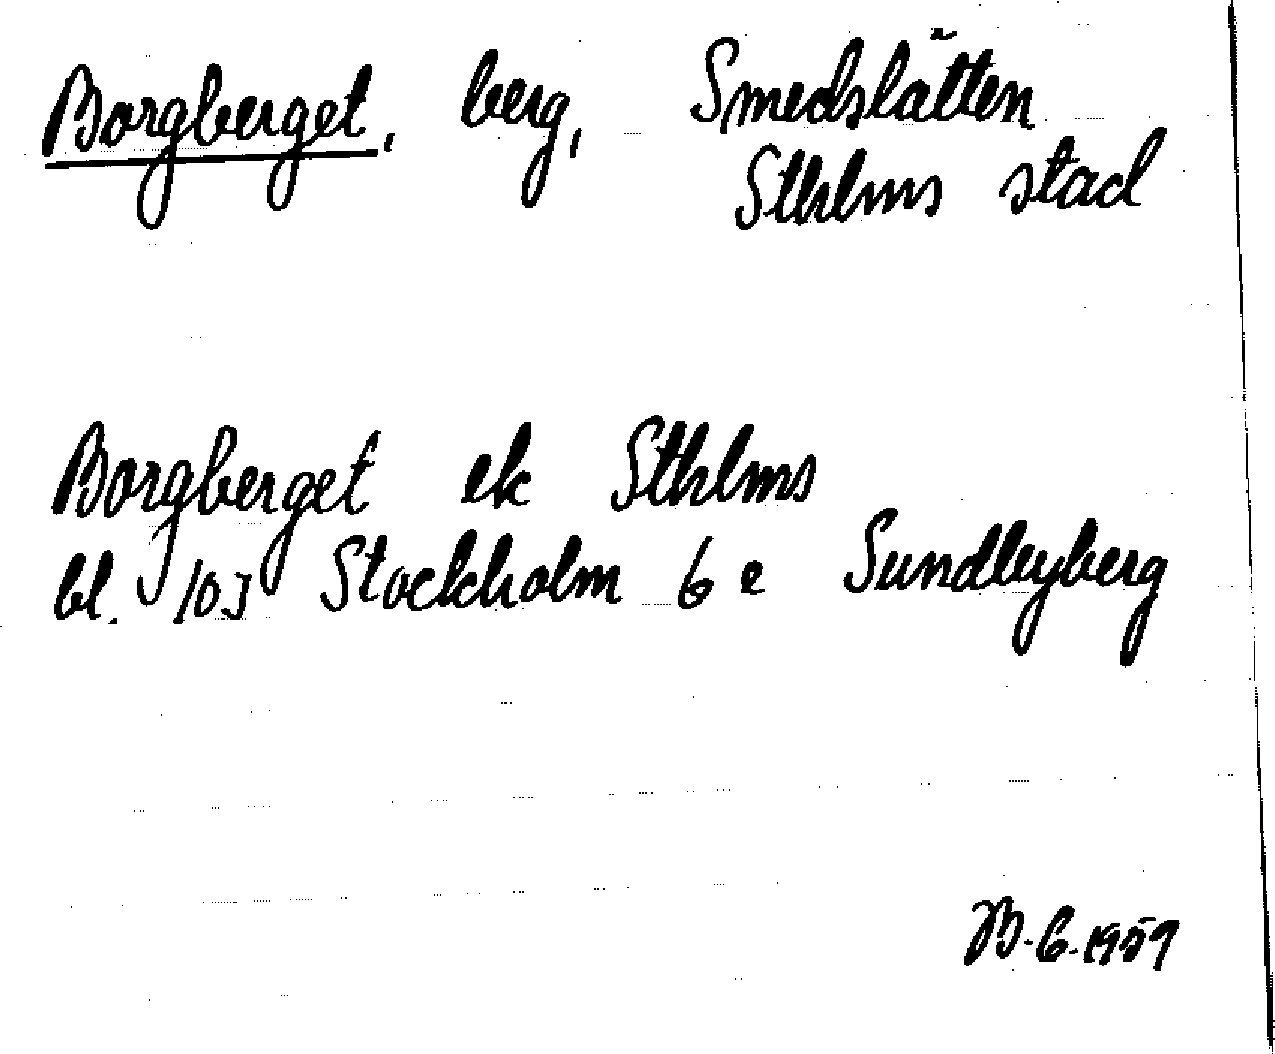 Borgberget, berg, Smedslätten
Sthlms stad
Borgberget ek Sthlms
bl. 10J Stockholm 6 e Sundbyberg
B.G. 1959